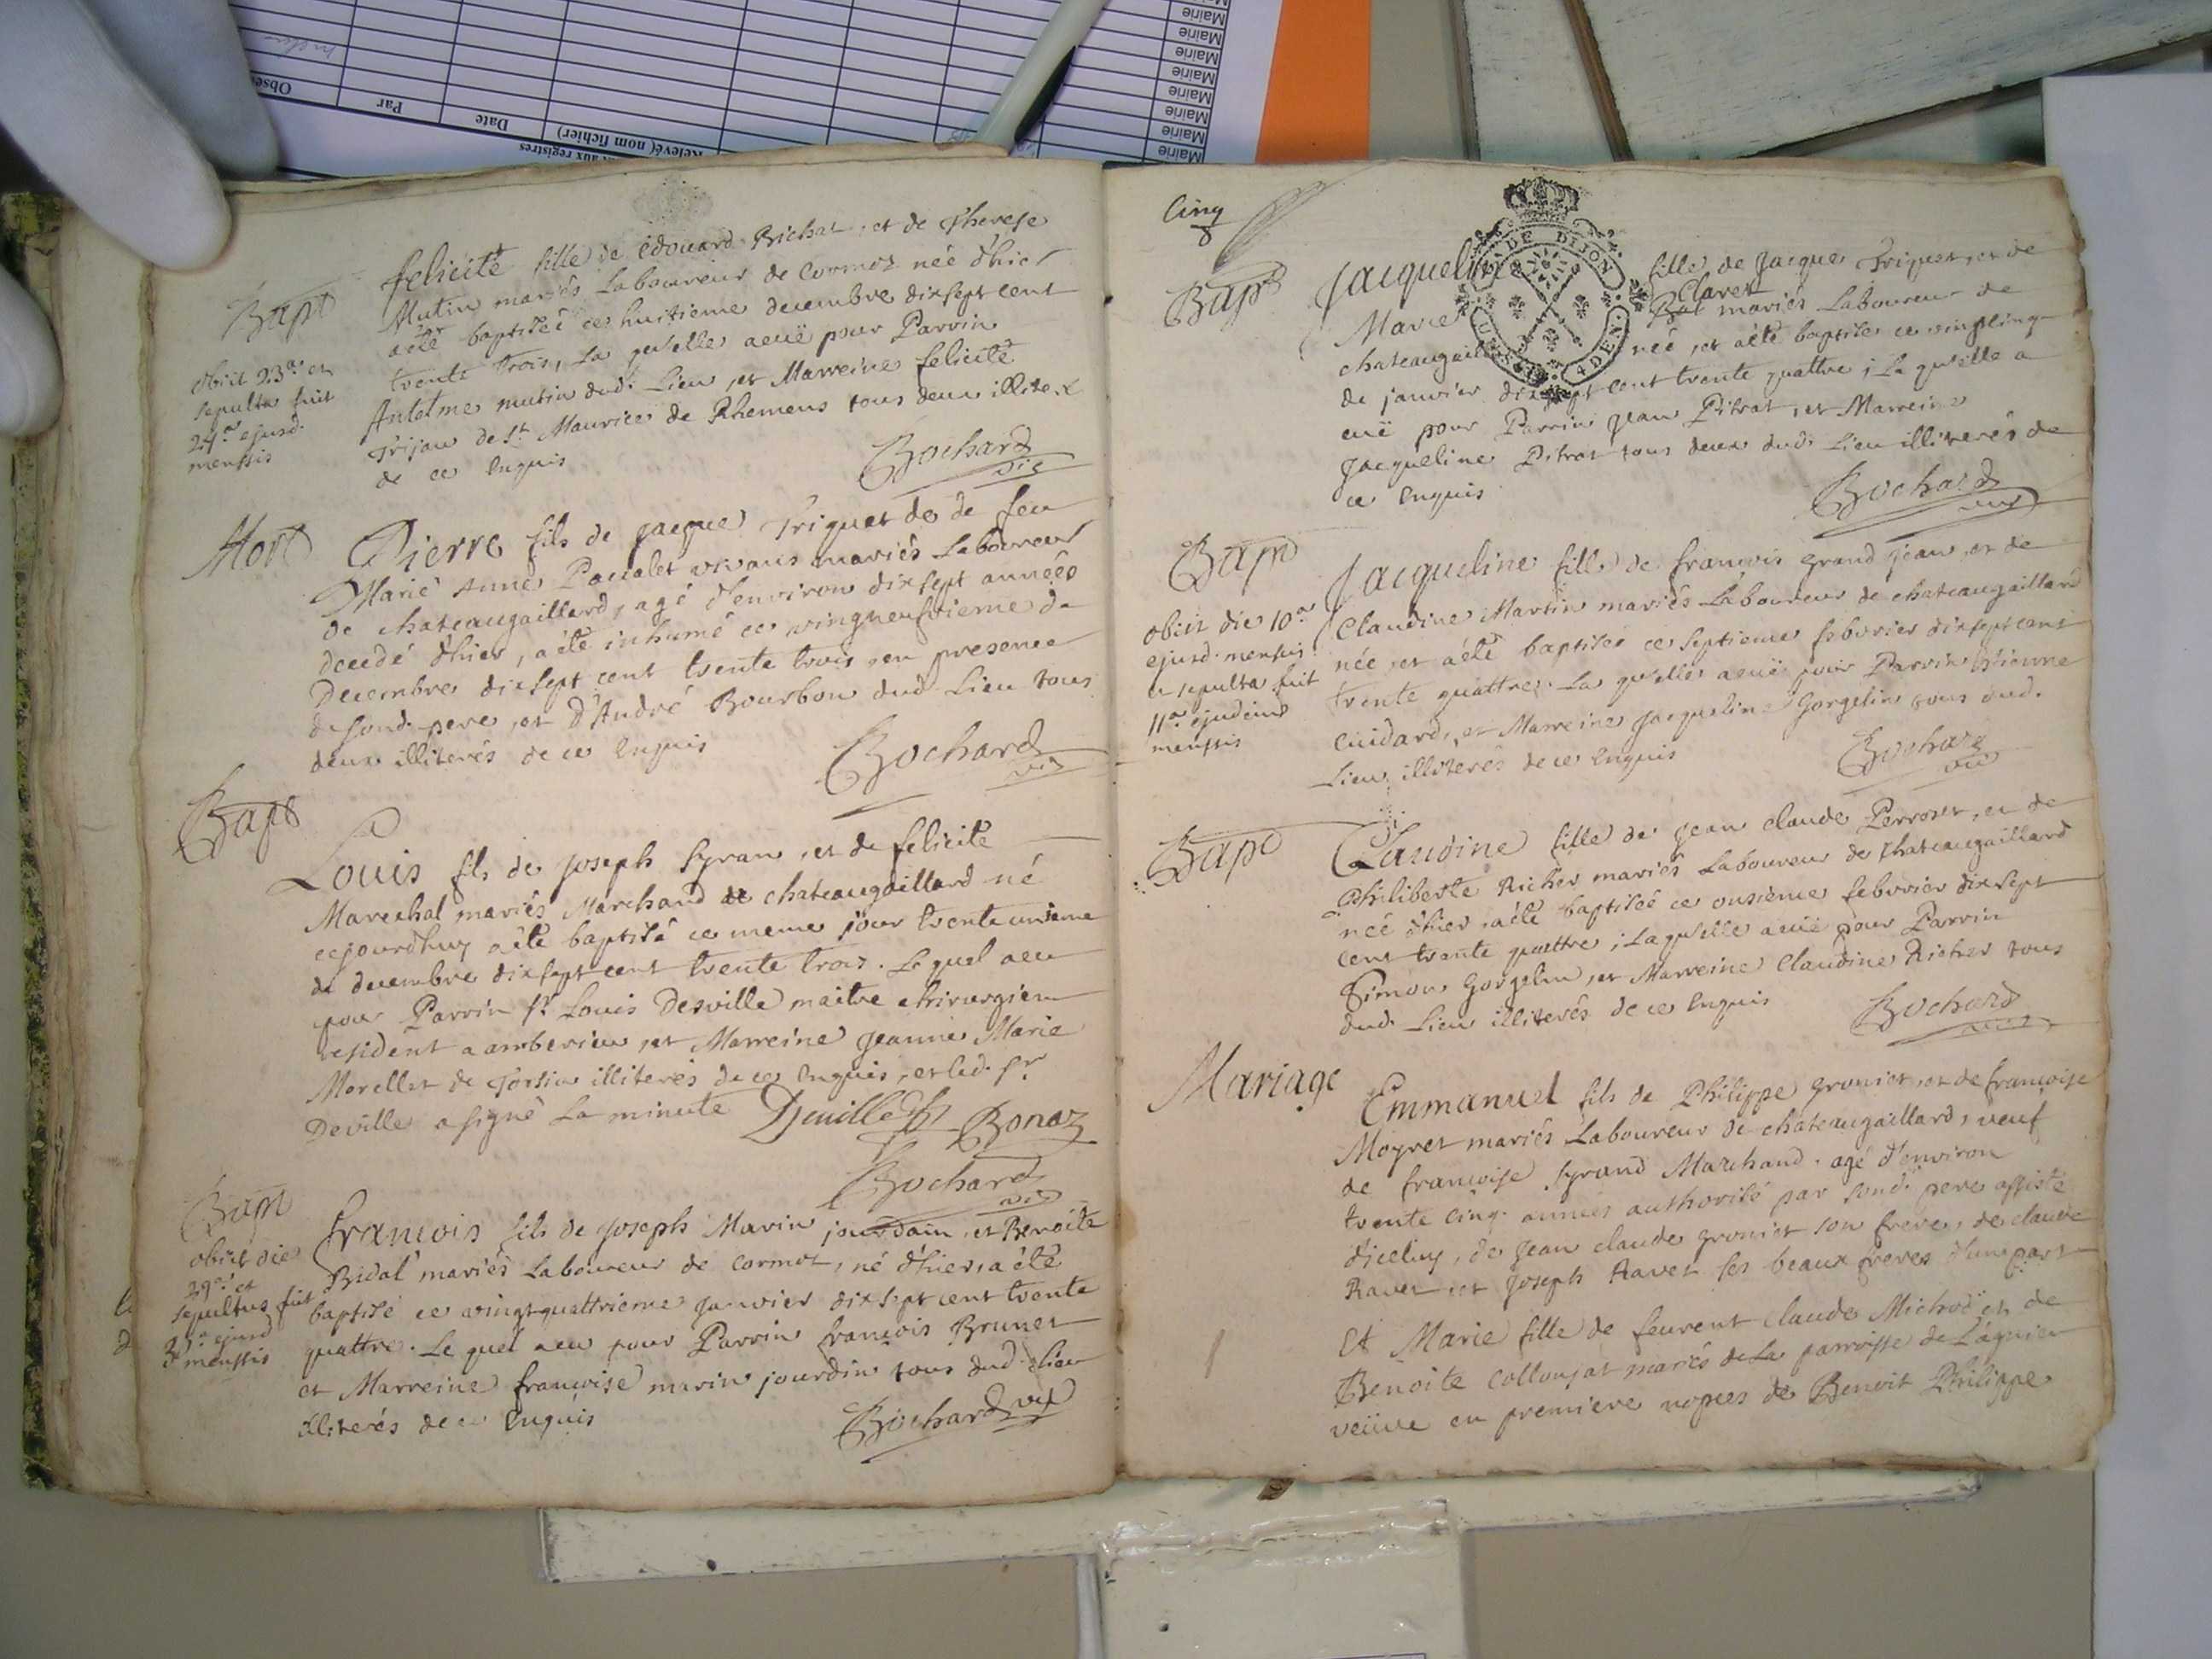 Mairie
Mairie
Mairie
Mairie
Mairie
Mairie
Mairie
Mairie
Obser
Par
Date
Relevé( nom fichier)
aux registres
Bapt
felicité fille de Edouard Bichat, et de Therese
Mutin mariés Laboureur de Cormoz née d'hier
aété baptiseé ce huitieme decembre dixsept cent
trente trois, La qu'elle aeuë pour Parrin
Antelme mutin dud. Lieu, et Marreine felicité
Trijau de St. Maurice de Rhemens tous deux illiter.
de ce Enquis
Bochard
vic
obiit 23a et
sepulta fuit
24a ejusd.
menssis
Mort
Pierre fils de Jacque Triquet de de feu
Marie Anne Paualet vivans mariés Laboureur
de chateaugaillard, agé d'environ dixsept années
decedé d'hier, aété inhumé ce vingneufvieme de
Decembre dixsept cent trente trois, en presence
de sond. pere, et D'André Bourbon dud. Lieu tous
deux illiterés de ce Enquis
Bochard
vic
Bapt
Louis fils de Joseph Syran, et de felicité
Marechal mariés Marchand de chateaugaillard né
cejourdhuy aété baptisé ce meme jour trente unieme
de decembre dixsept cent trente trois. Le quel aeu
pour Parrin Sr. Louis Desville maitre chirurgien
resident a amberieu, et Marreine Jeanne Marie
Morellet de Torsiu illiterés de ce Enquis, et led. Sr.
Deville a signé La minute Deuille
Bonaz
Bochard
vic
Bapt
obiit die
29a et
sepultus fuit
ejusd
menssis
francois fils de Joseph Marin jourdain, et Benoite
Bidal mariés Laboureur de Cormoz, né d'hier, aété
baptisé ce vingtquattrieme Janvier dixsept cent trente
quattre. Le quel aeu pour Parrin francois Brunet
et Marreine francoise marin jourdin tous dud. Lieu
illiterés de ce Enquis
Bochard vic
Cinq
8
Bapt
DE DIJON
4 DEN.
Jacqueline fille de Jacque Triquet, et de
Marie Claret
Bat mariés Laboureur de
chateaugaill née, et aété baptisée ce vingcinq
de janvier dixsept cent trente quattre; La qu'elle a
euë pour Parrin Jean Pitrat, et Marreine
Jacqueline Pitrat tous deux dud. Lieu illiterés de
ce Enquis
Bochard
vic
Bapt
obiit die 10a
ejusd. menssis
et sepulta fuit
11a ejusdem
menssis
Jacqueline fille de francois Grand jean, et de
Claudine Martin mariés Laboureur de chateaugaillard
née, et aété baptiseé ce septieme febvrier dixsept cent
trente quattre. La qu'elle aeuë pour Parrin Etienne
Cuidard, et Marreine Jacqueline Gorgelin tous dud.
Lieu illiterés de ce Enquis
Bochard
vic
Bapt
Claudine fille de Jean Claude Perroset, et de
Philiberte Richer mariés Laboureur de chateaugaillard
née d'hier, aété baptiseé ce onsieme febvrier dixsept
cent trente quattre; La qu'elle aeuë pour Parrin
Simon Gorgelin, et Marreine Claudine Richer tous
dud. Lieu illiterés de ce Enquis
Bochard
vic
Mariage
Emmanuel fils de Philippe groniet, et de francoise
Moyret mariés Laboureur de chateaugaillard, veuf
de francoise Syrand Marchand. agé d'environ
trente cinq. années authorisé par sond. pere assisté
d'iceluy, de Jean claude groniet son frere, de claude
Ravet et Joseph Ravet ses beaux freres d'une part
Et Marie fille de feurent Claude Michod et de
Benoite Collonjat mariés de La parroisse de Lágnieu
veüve en premiere nopces de Benoit Philippe